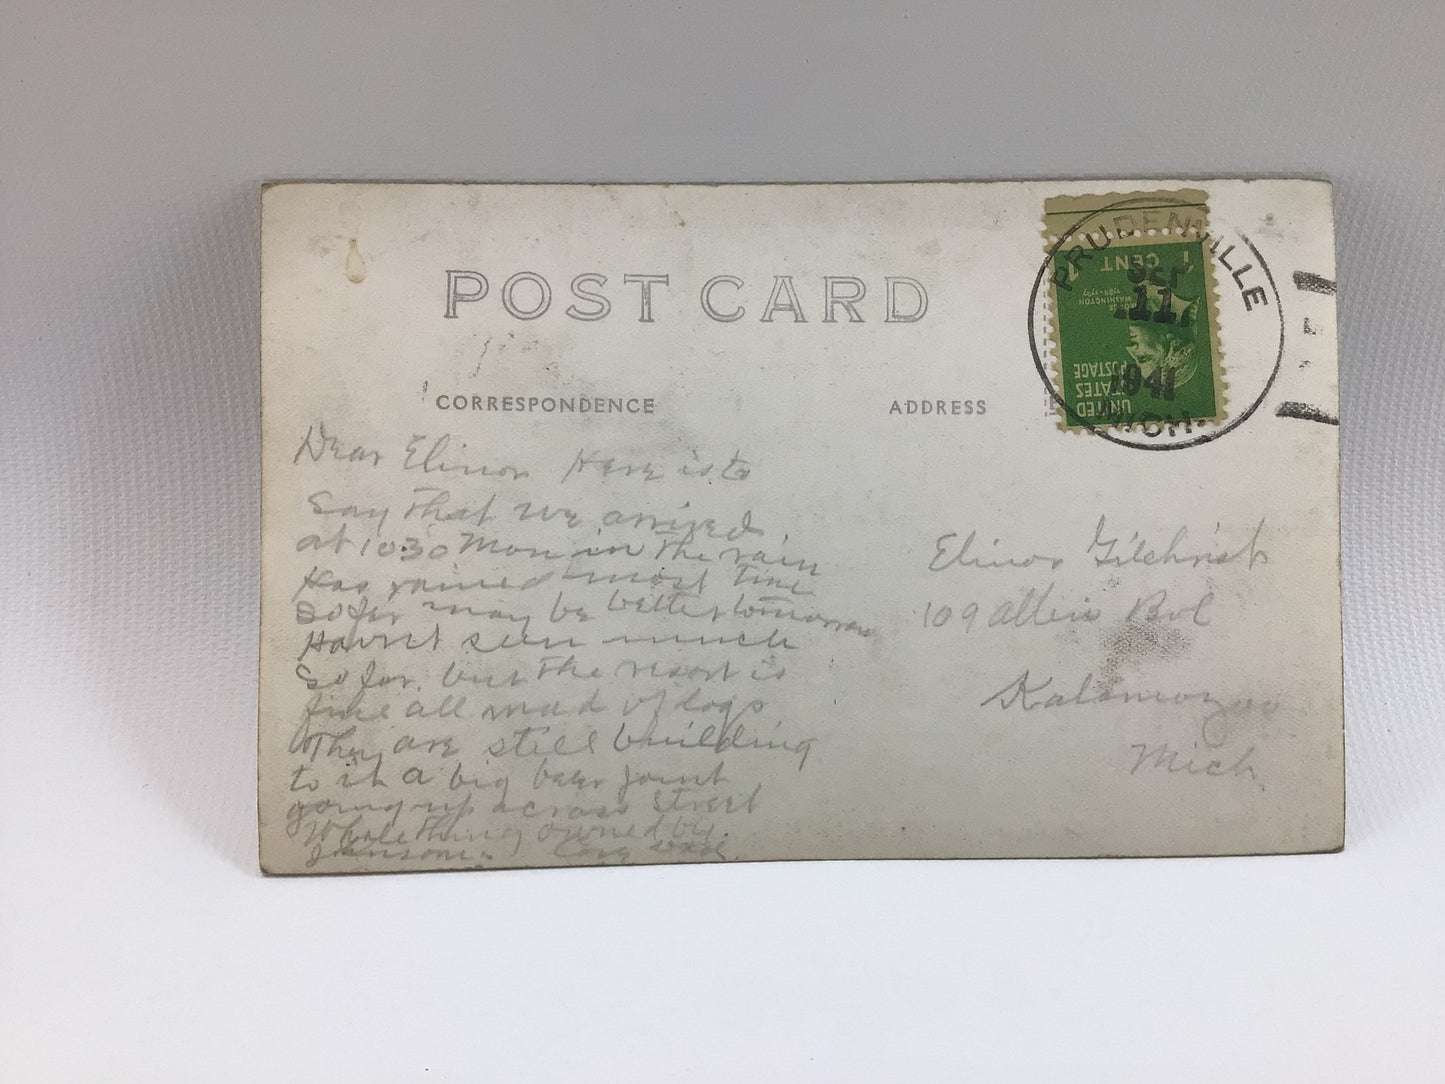 POST CARD
CORRESPONDENCE
ADDRESS
PRUDENVILLE
SEP
11
1941
MICH.
1 CENT 1
GEORGE
WASHINGTON
1789-1797
UNITED
STATES
POSTAGE
Dear Elinor Here is to
Say that we arrived
at 1030 Mon in the rain
Has rained most time
so far may be better tomorrow
Havnt seen much
So far. but the resort is
fine all mad of logs
They are still building
to it a big beer joint
going up across Street
Whole thing owned by.
Johnsons.
Elinor Gilchrist
109 Allen Bvl
Kalamazoo
Mich